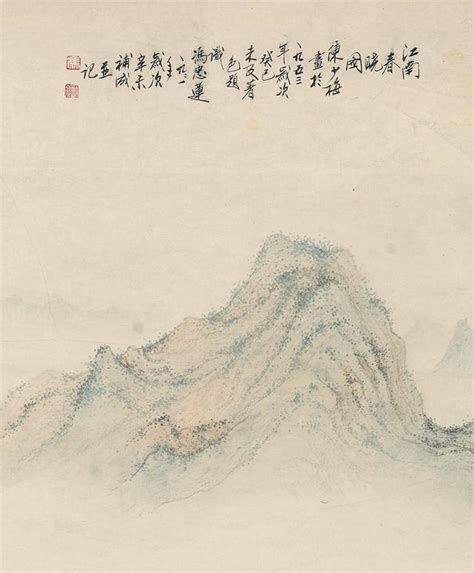 江南
春
晓
圖
陳少梅
畫於
一九五三
年歲次
癸巳
未及着
色題
識
馮忠蓮
一九九一
年
歲次
辛未
補成
並
記